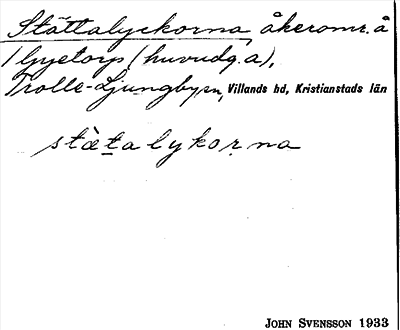 Stättalyckorna, åkeromr. å
Gyetorp (huvudg. a),
Trolle-Ljungby sn, Villands hd, Kristianstads län
stàtalykoṛna
JOHN SVENSSON 1933